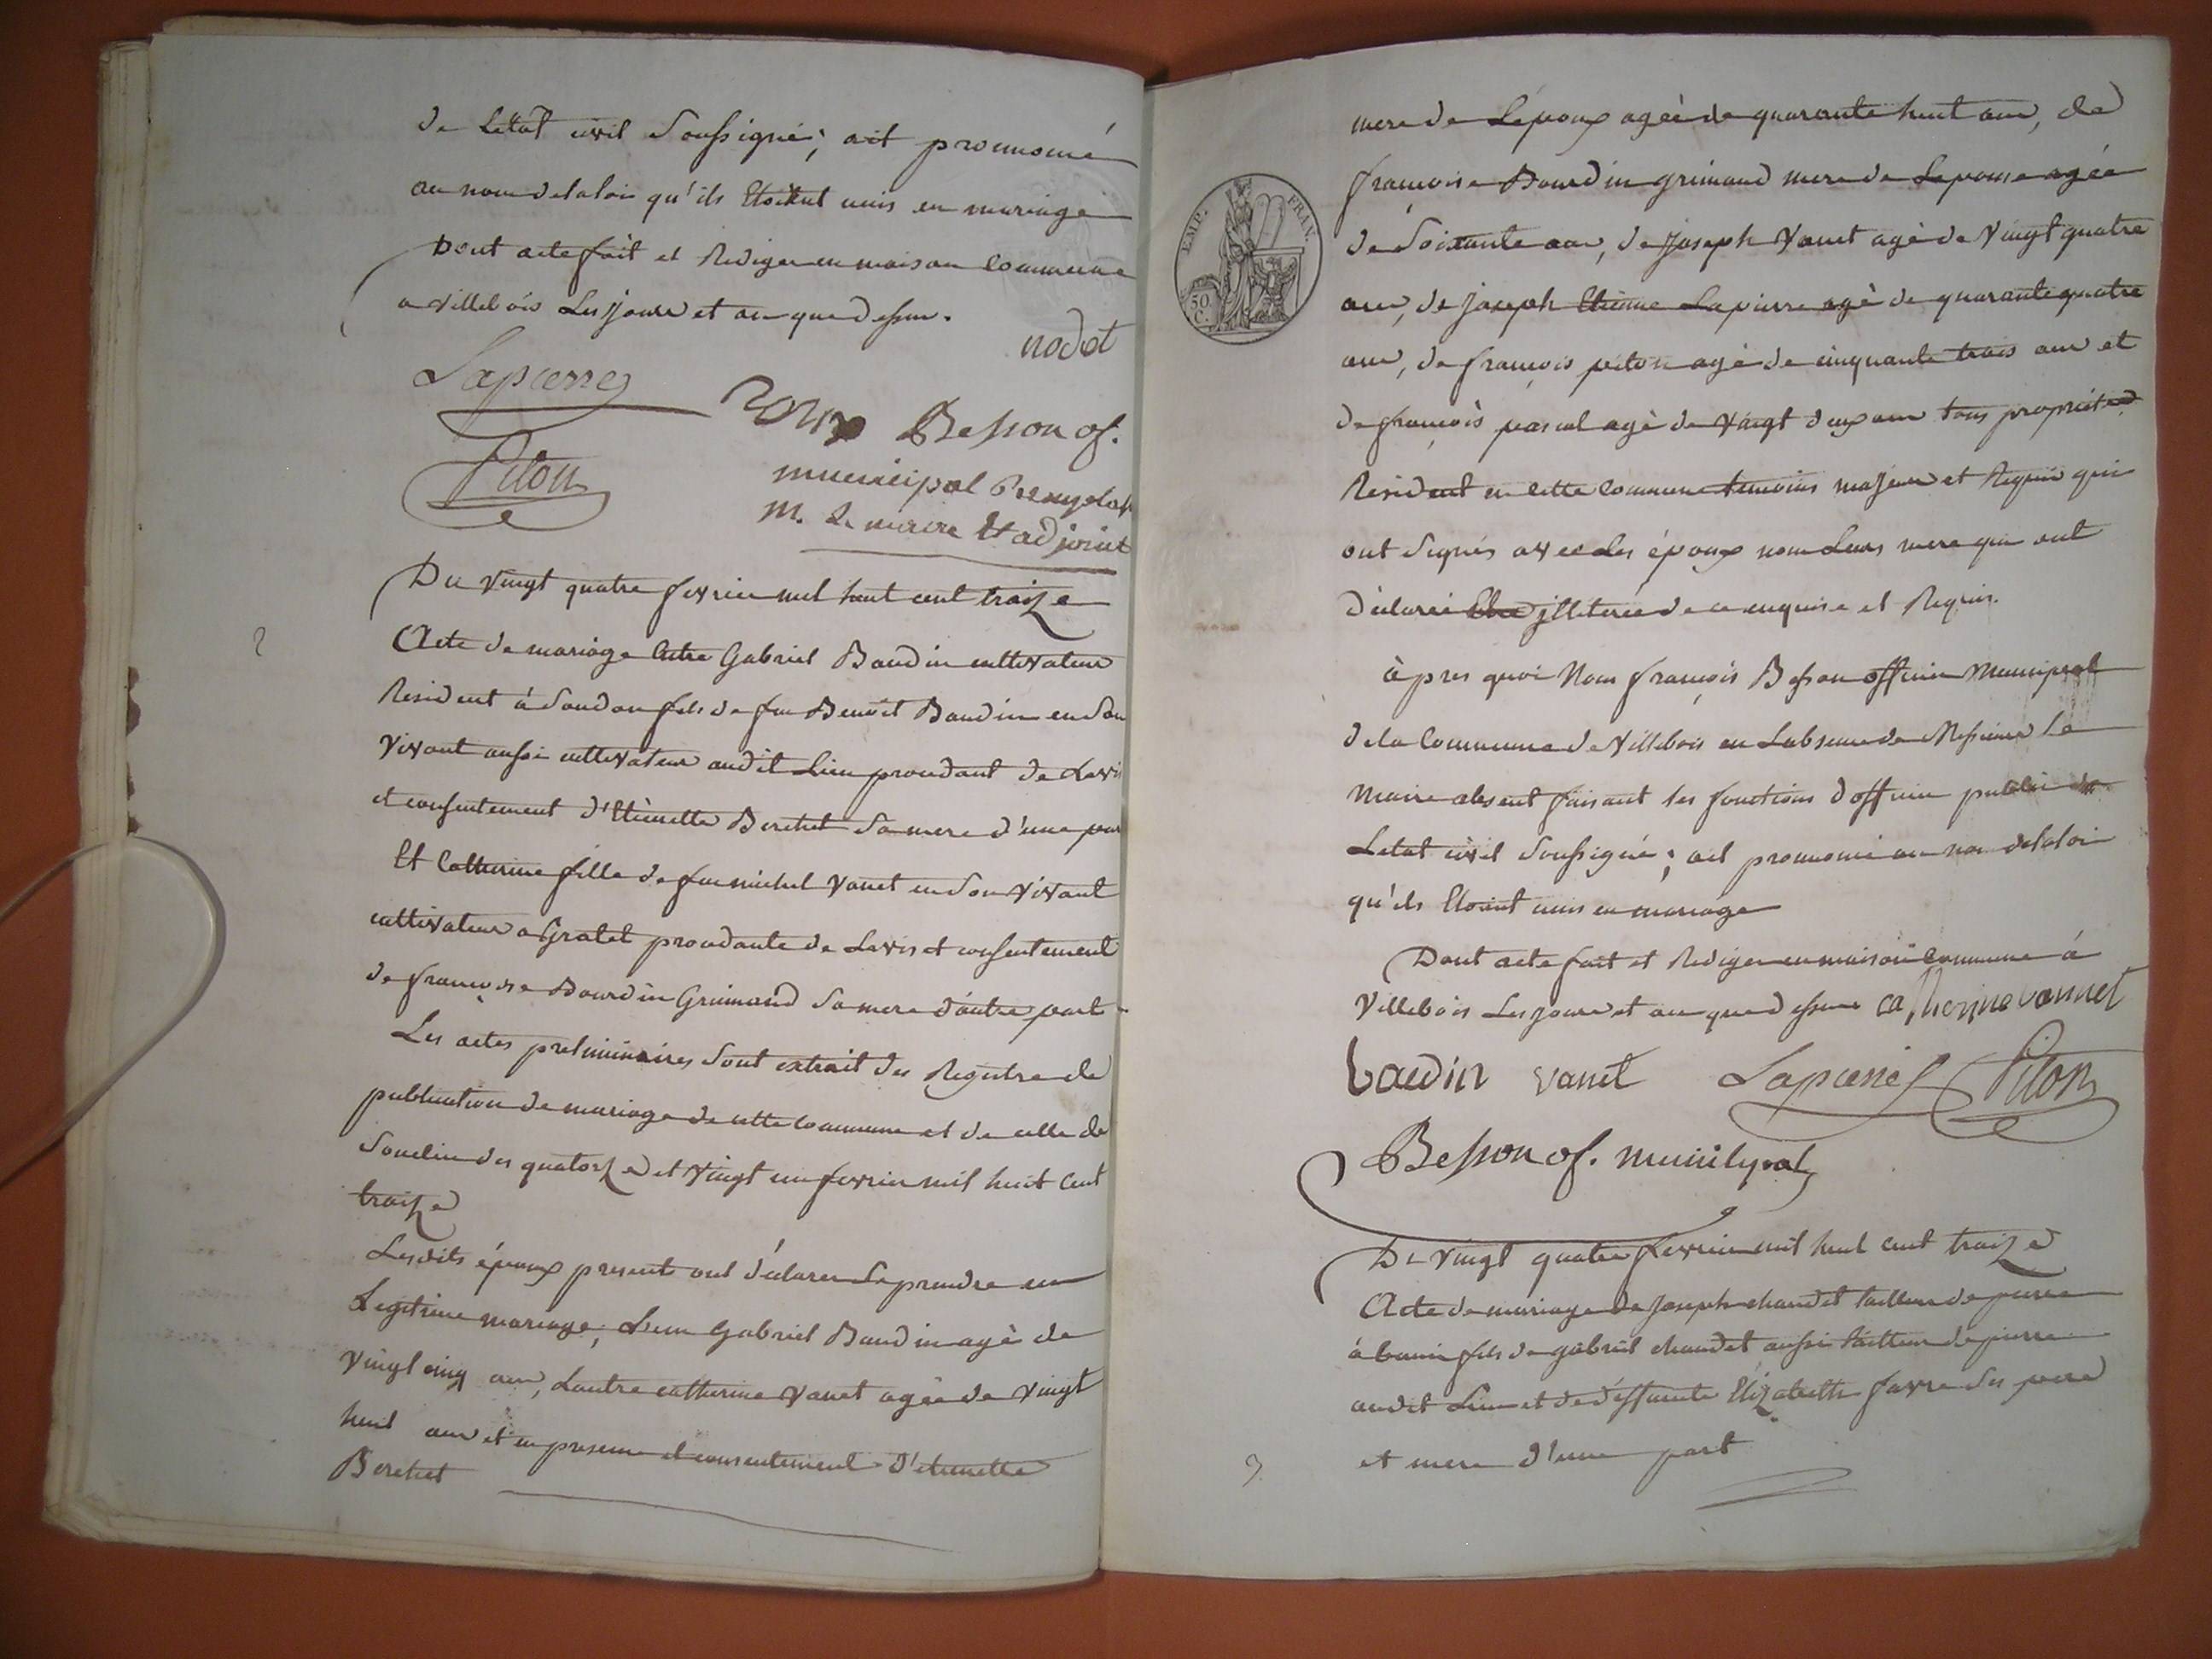 de Létat civil Soussigné; ait prononcé
au nom delaloi qu'ils Etoient unis en mariage
Dont acte fait et Rediger en maison Commune
a villebois Les jour et an que dessus.
nodet
Lapierre
Roux Besson of.
Piton
municipal
M. Le maire Et adjoint
Du vingt quatre fevrier mil huit cent traize
Acte de mariage Entre Gabriel Baudin cultivateur
Resident à Soudon fils de feu Benoit Baudin en Son
vivant aussi cultivateur audit Lieu procedant de Lavis
et consentement d'Etiennette Berchet Sa mere d'une part
Et Catherine fille de feu michel vanet en Son vivant
cultivateur a Gratet procedante de Lavis et consentement
de françoise Bourdin Grimand Sa mere d'autre part
Les actes preliminaires Sont extrait des Registre de
publication de mariage de cette commune et de celle de
Souclin des quatorze et vingt un fevrier mil huit Cent
traize
Lesdits époux present ont déclarer Se prendre en
Legitime mariage; L'un Gabriel Baudin agé de
vingt cinq ans, Lautre catherine vanet agée de vingt
huit ans et en presence et consentement d'etiennette
Berchet
mere de Lépoux agée de quarante huit ans, de
françoise Bourdin grimand mere de Lepouse agée
de Soixante ans, de joseph vanet agé de vingt quatre
ans, de joseph Etienne Lapierre agé de quarante quatre
ans, de françois piton agé de cinquante trois ans et
de françois pascal agé de vingt deux ans tous propriet.
Resident en cette Commune temoins majeurs et Requis qui
ont Signés avec Les époux non Leurs mere qui ont
déclaré Etre jlliterée de ce enquise et Requis.
à pres quoi Nous françois Besson officier Municipal
dela Commune de villebois en Labsence de Messieur Le
Maire absent faisant les fonctions d'officier public de
Letat civil Soussigné; ait prononcé au nom delaloi
qu'ils Etoient unis en mariage
Dont acte fait et Rediger en maison Commune à
villebois Les jour et an que dessus catherine vannet
baudin vanet Lapierre Piton
Besson of. municipal
EMP. FRAN.
50 C.
Du vingt quatre fevrier mil huit cent traize
Acte de mariage de Joseph chaudet tailleur de pierre
à buni fils de gabriel chaudet aussi tailleur de pierre
audit Lieu et de déffunte Elizabeth favre Ses pere
et mere d'une part